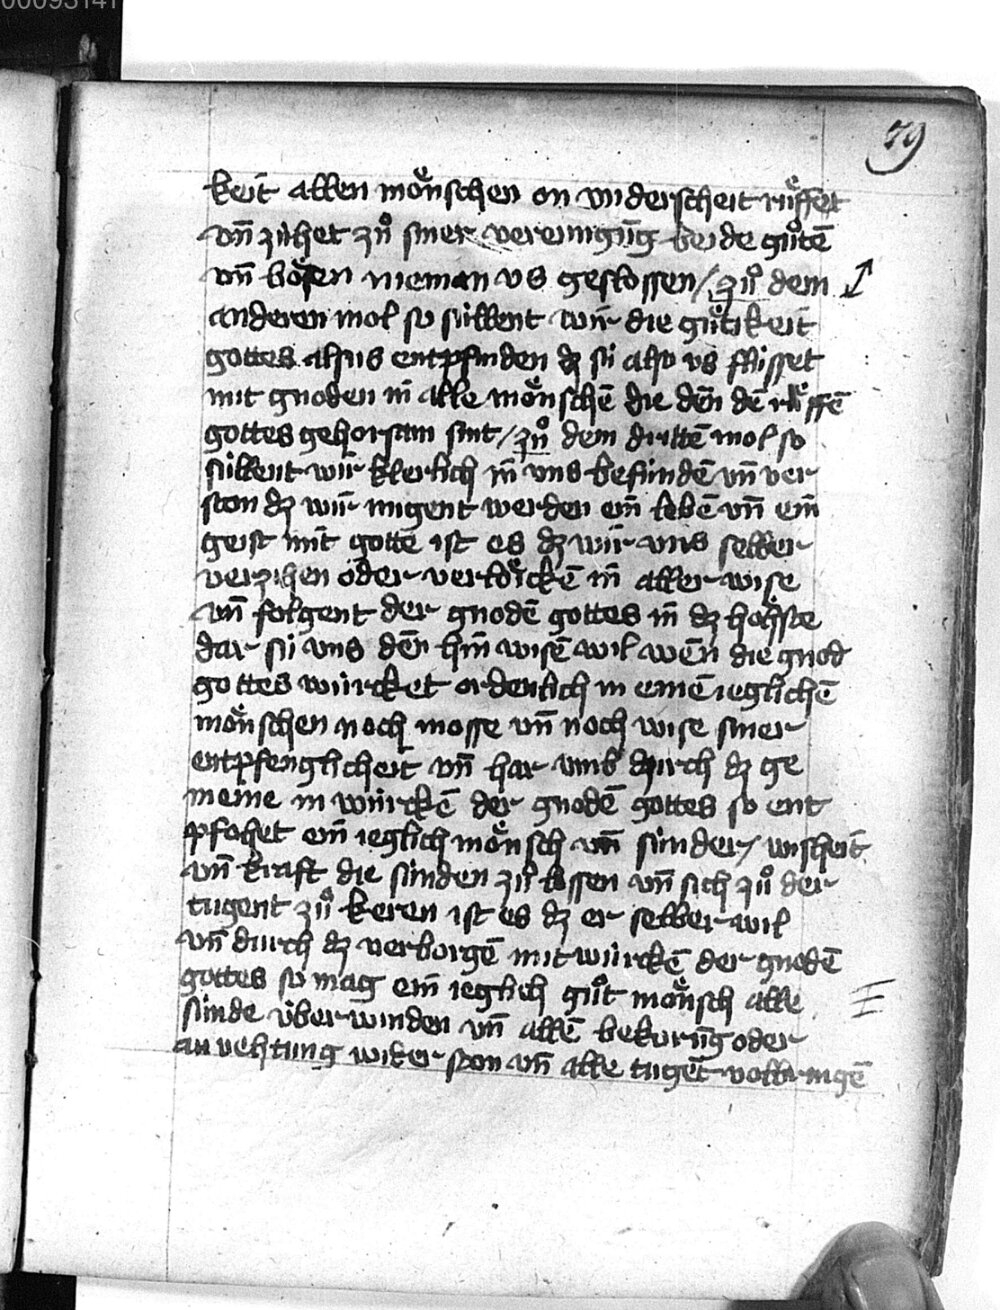 00093141
79
keit allen moͤnschen on vnderscheit ruͤffet
vn̄ zihet zuͦ siner vereinigūg beide guͦtē
vn̄ boͤsen nieman vs gestossen / zuͦ dem
anderen mol so súllent wir die guͤtikeit
gottes alsus entpfinden dz sú also vs flússet
mit gnoden in̄ alle moͤnschē die den̄ dē ruͤffē
gottes gehorsam sint / zuͦ dem drittē mol so
súllent wir klerlich in̄ vns befindē vn̄ ver
ston dz wir múgent werden ein̄ lebē vn̄ ein̄
geist mit gotte ist es dz wir vns selber
verzihen oder verloͤickē in̄ aller wise
vn̄ folgent der gnodē gottes in̄ dz hoͤhste
dar sú vns den̄ hin̄ wisē wil wen̄ die gnod
gottes wúrcket ordenlich in einē ieglichē
moͤnschen noch mosse vn̄ noch wise siner
entpfenglicheit vn̄ har vmb durch dz ge
meine in wúrckē der gnodē gottes so ent
pfohet ein̄ ieglich moͤnsch vn̄ súnder / wisheit
vn̄ kraft die súnden zuͦ lossen vn̄ sich zuͦ der
tugent zuͦ keren ist es dz er selber wil
vn̄ durch dz verborgē mit wúrckē der gnodē
gottes so mag ein̄ ieglich guͦt moͤnsch alle
súnde úberwinden vn̄ allē bekorūg oder
anvehtung wider ston vn̄ alle tugēt volbringē